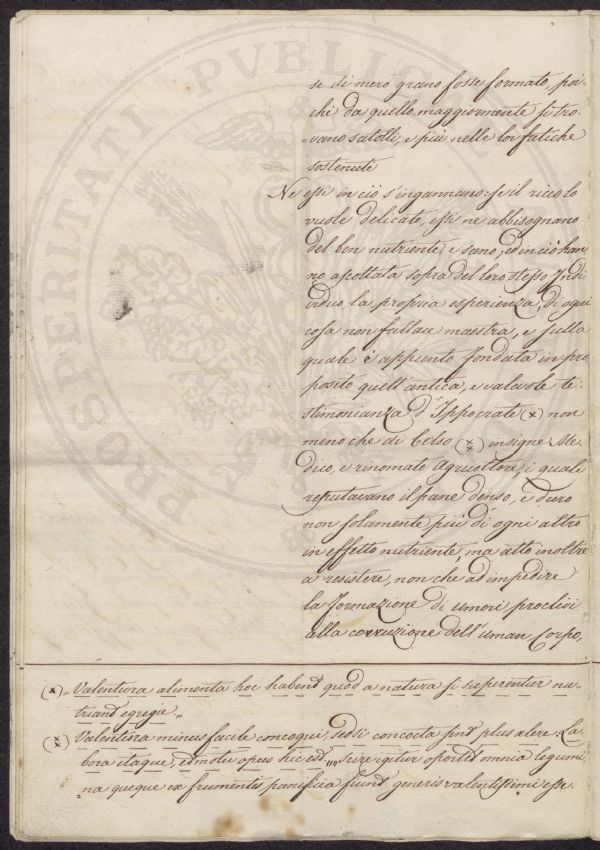 se di mero grano fosse formato, poi-
chè da quello maggiormente si tro-
-vano satolli, e più nelle lor fatiche
sostenuti
Ne essi in ciò s'ingannano: se il ricco lo
vuole delicato, essi ne abbisognano
del ben nutriente, e sano, ed in ciò han-
no apottata sopra del loro stesso Indi-
viduo la propria esperienza, di ogni
cosa non fallace maestra, e sulla
quale è appunto fondata in pro-
posito quell'antica, e valevole te-
stimonianza d'Ippocrate (x) non
meno che di Celso (x) insigne Me-
dico, e rinomato Agricoltore, i quale
reputavano il pane denso, e duro
non solamente più di ogni altro
in effetto nutriente, ma atto inoltre
a resistere, non che ad impedire
la formazione di umori proclivi
alla corruzione dell'uman Corpo,
(x) „ Valentiora alimenta hoc habent quod a natura si superentur nu-
triant egregie „
(x) Valentiora minus facile concoqui, sed si concocta sint plus alere: La-
bora itaque, et motu opus hic est „ „ scire igitur oportet omnia legumi-
na queque ex frumentis panificia sunt generis valentissimi esse.
PROSPERITATI PVBLICAE